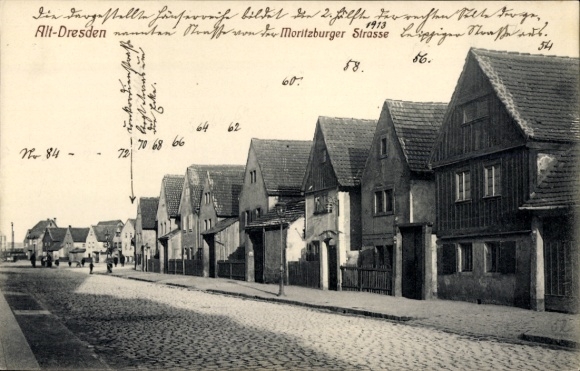 Die dargestellte Häuserreihe bildet die 2. Hälfte der rechten Seite der ge-
nannten Straße von der Leipziger Straße aus.
Alt-Dresden
Moritzburger Strasse
1913
54
56.
58.
60.
62
64
66
68
70
72
Nr 84 - -